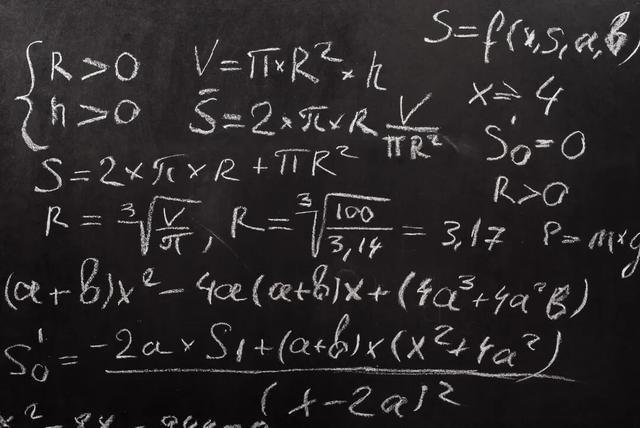 S=f(x,s,a,b)
{ R>0 V=π×R²×h
x≥4
{ h>0 S̄=2×π×R V/πR²
S'₀=0
S=2×π×R+πR²
R>0
R=∛(V/π), R=∛(100/3,14)=3,17 P=m×g
(a+b)x²-4a(a+b)x+(4a³+4a²b)
S'₀=(-2a×S₁+(a+b)×(x²+4a²))/(x-2a)²